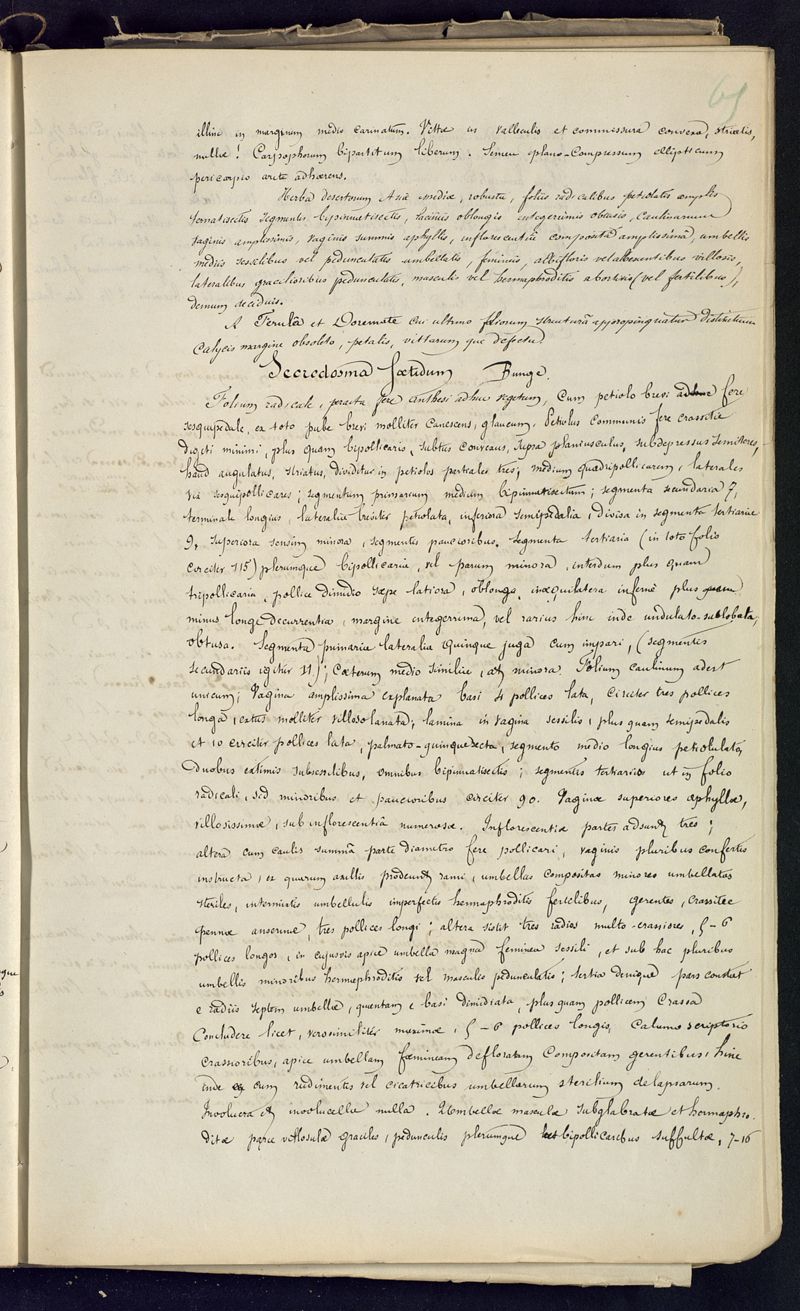 65
illinc in marginum medio carinatum. Vittae in valleculis et commissura convexa, striatis,
nullae! Carpophorum bipartitum liberum. Semen plano-compressum ellipticum
pericarpio arcte adhaerens.
Herba desertorum Asiae mediae, robusta, foliis radicalibus petiolatis amplis
ternatisectis segmentis bipinnatisectis, laciniis oblongis integerrimis obtusis, caulinarum
vaginis amplissimis, vaginis summis aphyllis, inflorescentia composita amplissima, umbellis
mediis sessilibus vel pedunculatis umbellatis, femineis, albifloris vel albescentibus villosis,
lateralibus gracilioribus pedunculatis, masculis vel hermaphroditis abortivis (vel fertilibus),
demum deciduis.
A Ferula et Doremate cui ultimo foliorum structura appropinquatur distinctum
calycis margine obsoleto, petalis, vittarum que defectu.
Scorodosma foetidum Bunge.
Folium radicale, peracta fere anthesi adhuc vegetum, cum petiolo brevi fere
sesquipedale, ex toto pube brevi molliter canescens, glaucum. Petiolus communis fere crassitie
digiti minimi, plus quam bipollicaris, subtus convexus, supra planiusculus, subdepressus semiteres,
haud angulatus, striatus, dividitur in petiolos partiales tres, medium quadripollicarem, laterales
vix sesquipollicares; segmentum primarium medium bipinnatisectum; segmenta secundaria 7,
terminale longius, lateralia breviter petiolata, inferiora semipedalia, divisa in segmenta tertiaria
9, superiora sensim minora, segmentis paucioribus. Segmenta tertiaria (in toto folio
circiter 115) plerumque bipollicaria, vel parum minora, interdum plus quam
tripollicaria, pollice dimidio saepe latiora, oblonga, inaequilatera inferne plus
minus longe decurrentia, margine integerrima, vel rarius hinc inde undulato-sublobata,
obtusa. Segmenta primaria lateralia quinque juga cum impari, (segmentis
secundariis igitur 11); caeterum medio similia, at minora. Folium caulinum adest
unicum; Vagina amplissima explanata basi 4 pollices lata, circiter tres pollices
longa, extus molliter villoso lanata; lamina in vagina sessilis, plus quam semipedalis
et 10 circiter pollices lata, palmato-quinquesecta, segmento medio longius petiolulato,
duobus extimis subsessilibus, omnibus bipinnatisectis; segmentis tertiariis ut in folio
radicali, sed minoribus et paucioribus circiter 90. Vaginae superiores aphyllae,
villosissimae, sub inflorescentia numerosae. Inflorescentiae partes adsunt tres;
altera cum caulis summa parte diametro fere pollicari, vaginis pluribus confertis
instructa, ex quarum axillis prodeunt rami, umbellas compositas minores umbellatas
steriles, intermixtis umbellulis imperfectis hermaphroditis fertilibus, gerentes, crassitie
pennae anserinae, tres pollices longi; altera sistit tres radios multo crassiores, 5-6
pollices longos, in cujusvis apice umbella magna feminea sessili, et sub hac pluribus
umbellis minoribus hermaphroditis vel masculis pedunculatis; tertia denique pars constat
e radiis septem umbellae, quantum e basi dimidiata plus quam pollicem crassa
concludere licet, verosimiliter maximae, 5-6 pollices longis, calamo scriptorio
crassioribus, apice umbellam foemineam defloratam compositam gerentibus, hinc
inde cum rudimentis vel cicatricibus umbellarum sterilium delapsarum.
Involucra et involucella nulla. Umbellae masculae subglabratae et hermaphro-
ditae parce villosulae graciles, pedunculis plerumque bipollicaribus suffultae, 7-16